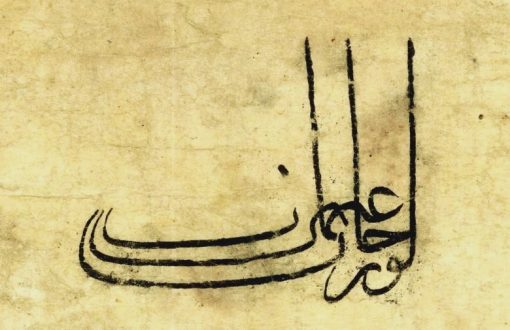 اورخان بن عثمان